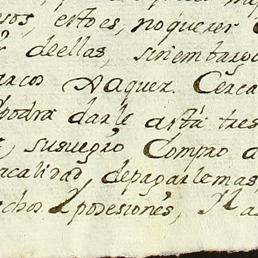 sos, esto es, no querer
deellas, sin embargo
arcos Vaquez. Cerca
podrá darle asta tres
, susuegro Compro a
acalidad, depagarlemas
chos y posesiónes,